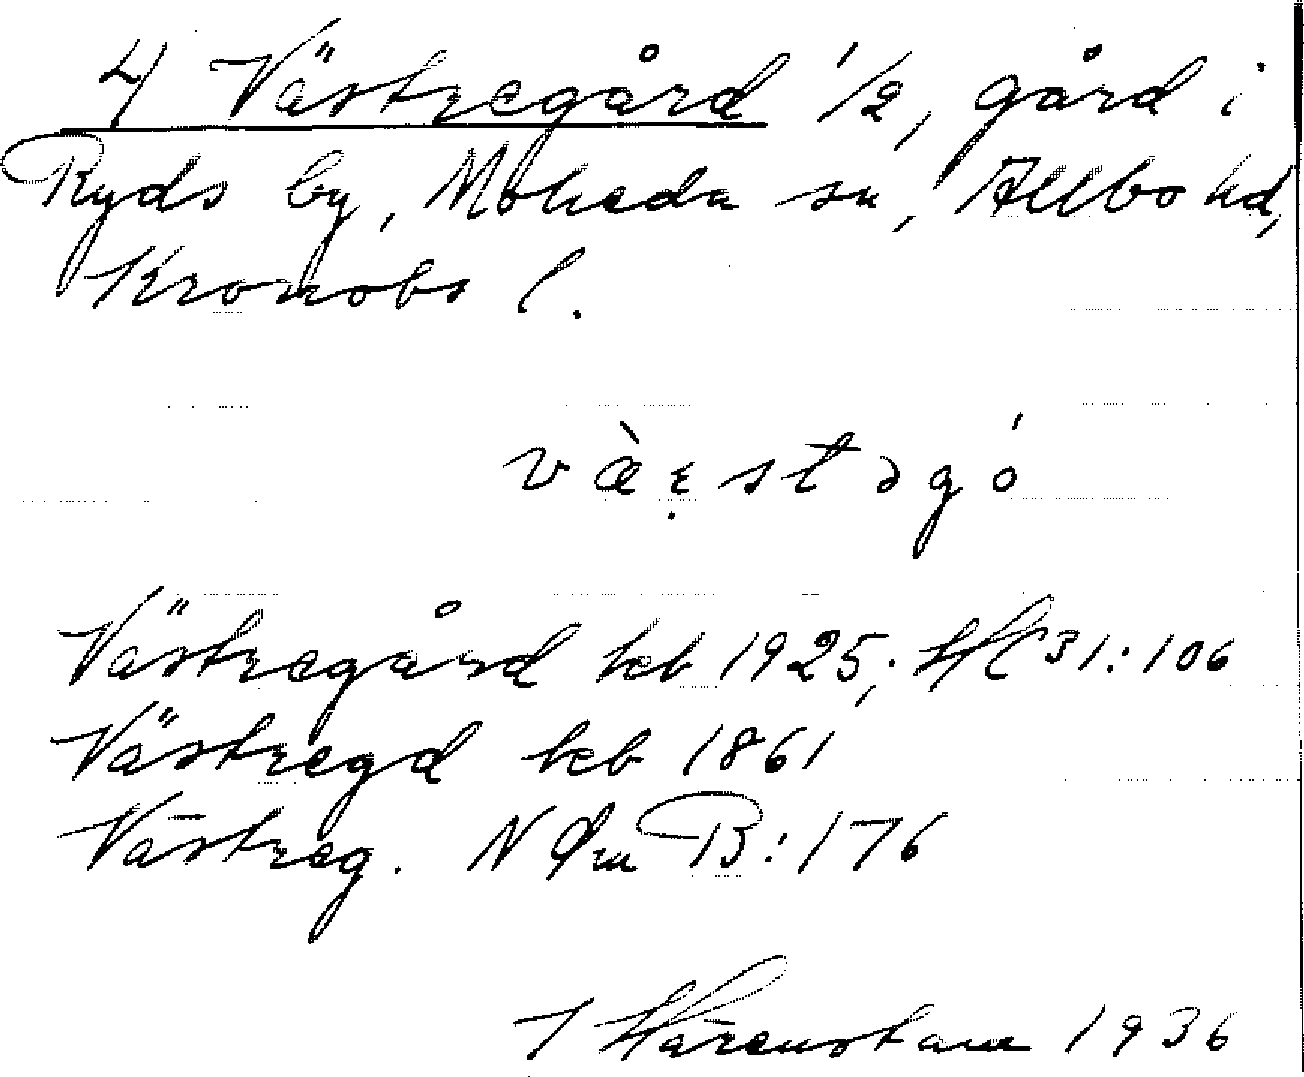 4 Västregård 1/2, gård i
Ryds by, Moheda sn, Allbo hd,
Kronobs l.
væ̀ɛ̣stəgó
Västregård keb 1925; HC 31:106
Västregd keb 1861
Västreg. N Øm B:176
J Härenstam 1936